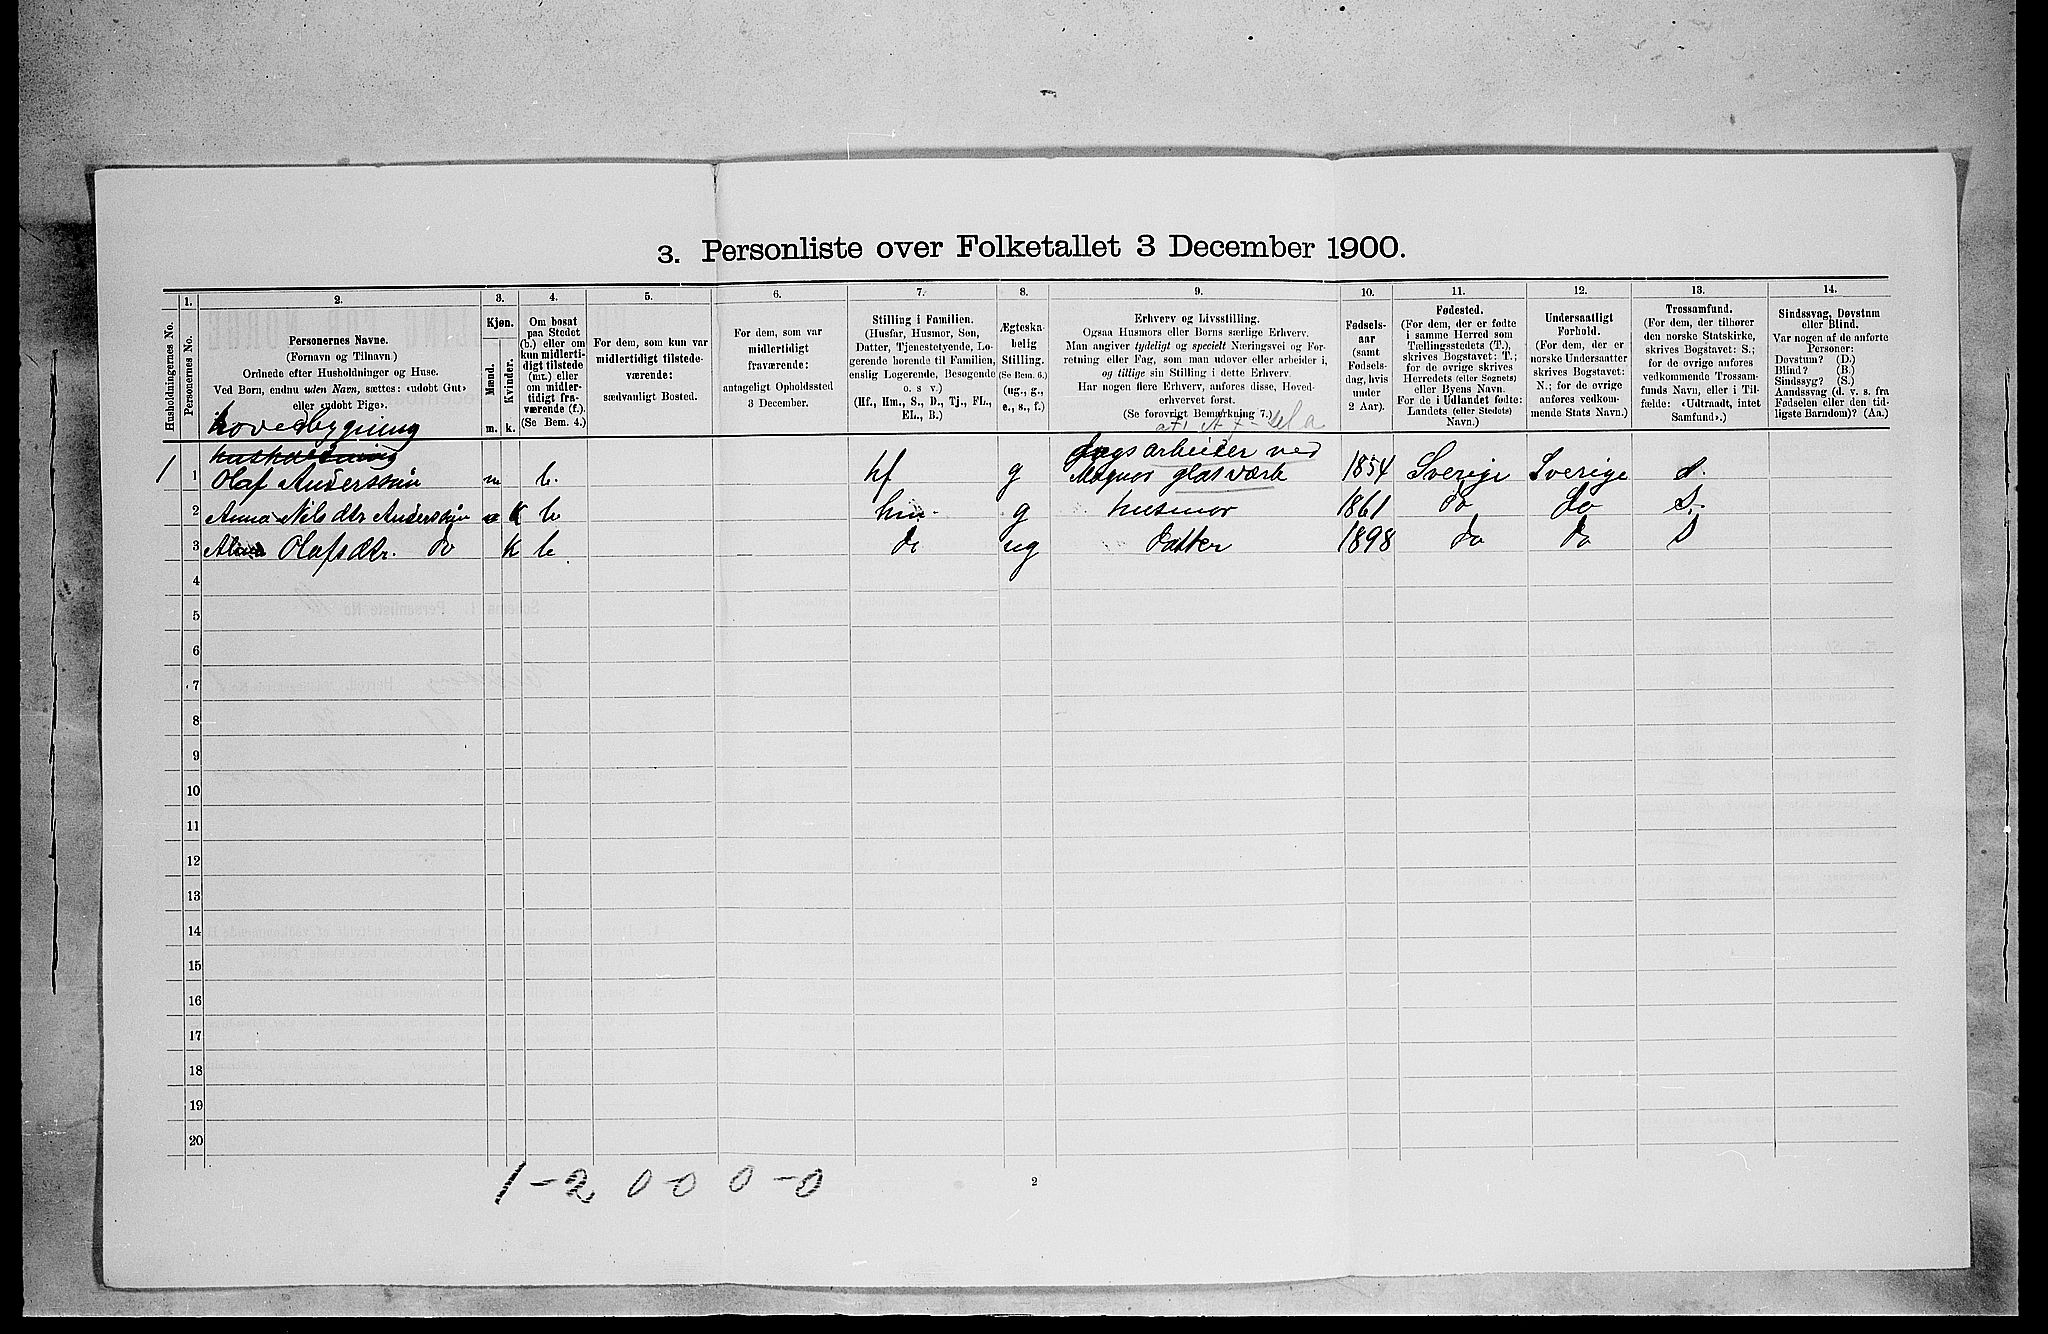 3. Personliste over Folketallet 3 December 1900.
1. 2. 3. 4. 5. 6. 7. 8. 9. 10. 11. 12. 13. 14.
Husholdningernes No.
Personernes No.
Personernes Navne.
(Fornavn og Tilnavn.)
Ordnede efter Husholdninger og Huse.
Ved Børn, endnu uden Navn, sættes: «udøbt Gut»
eller «udøbt Pige».
Kjøn.
Mænd.
Kvinder.
m. k.
Om bosat
paa Stedet
(b.) eller om
kun midlerti-
digt tilstede
(mt.) eller
om midler-
tidigt fra-
værende (f.).
(Se Bem. 4.)
For dem, som kun var
midlertidigt tilstede-
værende:
sædvanligt Bosted.
For dem, som var
midlertidigt
fraværende:
antageligt Opholdssted
3 December.
Stilling i Familien.
(Husfar, Husmor, Søn,
Datter, Tjenestetyende, Lo-
gerende hørende til Familien,
enslig Logerende, Besøgende
o. s v.)
(Hf., Hm., S., D., Tj., FL.,
EL., B.)
Ægteska-
belig
Stilling.
(Se Bem. 6.)
(ug., g.,
e., s., f.)
Erhverv og Livsstilling.
Ogsaa Husmors eller Børns særlige Erhverv.
Man angiver tydeligt og specielt Næringsvei og For-
retning eller Fag, som man udøver eller arbeider i,
og tillige sin Stilling i dette Erhverv.
Har nogen flere Erhverv, anføres disse, Hoved-
erhvervet først.
(Se forøvrigt Bemærkning 7.)
Fødsels-
aar
(samt
Fødsels-
dag, hvis
under
2 Aar).
Fødested.
(For dem, der er fødte
i samme Herred som
Tællingsstedets (T.),
skrives Bogstavet: T.;
for de øvrige skrives
Herredets (eller Sognets)
eller Byens Navn.
For de i Udlandet fødte:
Landets (eller Stedets)
Navn.)
Undersaatligt
Forhold.
(For dem, der er
norske Undersaatter
skrives Bogstavet:
N.; for de øvrige
anføres vedkom-
mende Stats Navn.)
Trossamfund.
(For dem, der tilhører
den norske Statskirke,
skrives Bogstavet: S.;
for de øvrige anføres
vedkommende Trossam-
funds Navn, eller i Til-
fælde: «Udtraadt, intet
Samfund».)
Sindssvag, Døvstum
eller Blind.
Var nogen af de anførte
Personer:
Døvstum? (D.)
Blind? (B.)
Sindssyg? (S.)
Aandssvag (d. v. s. fra
Fødselen eller den tid-
ligste Barndom)? (Aa.)
hovedbygning
husholdning
dagsarbeider ved
1 1 Olaf Andersson m b. hf g Magnor glasværk 1854 Sverige Sverige s.
2 Anna Nilsdtr Andersson k b hm. g husmor 1861 do do s.
3 Olafsdtr. do k b. d ug datter 1898 do do s
4
5
6
7
8
9
10
11
12
13
14
15
16
17
18
19
20
1-2 0-0 0-0
2